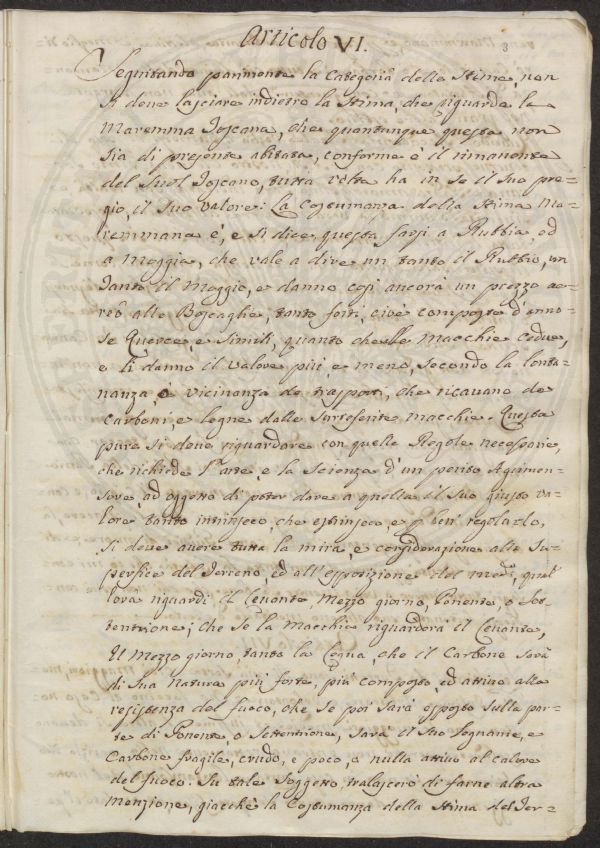 Articolo VI.
3
Seguitando parimente la Categoria delle Stime, non
si deve lasciare indietro la Stima, che riguarda la
Maremma Toscana, che quantunque questa non
sia di presente abitata, conforme è il rimanente
del Suol Toscano, tutta volta ha in se il suo pre=
gio, il suo valore: La Costumanza della Stima Ma=
remmana è, e si dice questa farsi a Rubbia, ed
a Moggia, che vale a dire un tanto il Rubbio, un
tanto il Moggio, e danno così ancora un prezzo ae=
reo alle Boscaglie, tanto forti, cioè composte d'anno=
se Querce, e simili, quanto che alle Macchie cedue,
e li danno il valore più, e meno, secondo la lonta=
nanza, o vicinanza de trasporti, che ricavano de
Carboni, e legne dalle surreferite Macchie. Questa
pure si deve riguardare con quelle Regole necessarie,
che richiede l'arte, e la Scienza d'un perito Agrimen=
sore, ad oggetto di poter dare a quella il suo giusto va=
lore tanto intrinseco, che estrinseco, e p ben regolarlo,
si deve avere tutta la mira, e considerazione alla Su=
perficie del Terreno, ed all'esposizione del med.º, qual=
lora riguardi il Levante, Mezzo giorno, Ponente, o Set=
tentrione; Che se la Macchia riguarderà il Levante,
el Mezzo giorno, tanto la Legna, che il Carbone sarà
di sua natura più forte, più composto, ed attivo alla
resistenza del fuoco, che se poi sarà esposto sulla par=
te di Ponente, o Settentrione, sarà il suo Legname, e
Carbone fragile, crudo, e poco, o nulla attivo al calore
del fuoco. Su tale Soggetto, tralascerò di farne altra
Menzione, giacchè la Costumanza della Stima del Ter=